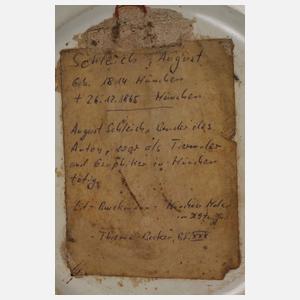 Schleich, August
Geb. 1814 München
+ 26.12.1865 München
August Schleich, Bruder des
Anton, war als Tiermaler
und Graphiker in München
tätig.
Lit - Bruckmann - Münchner Maler
im 19. Jh.
- Thieme-Becker, Bd. XXX